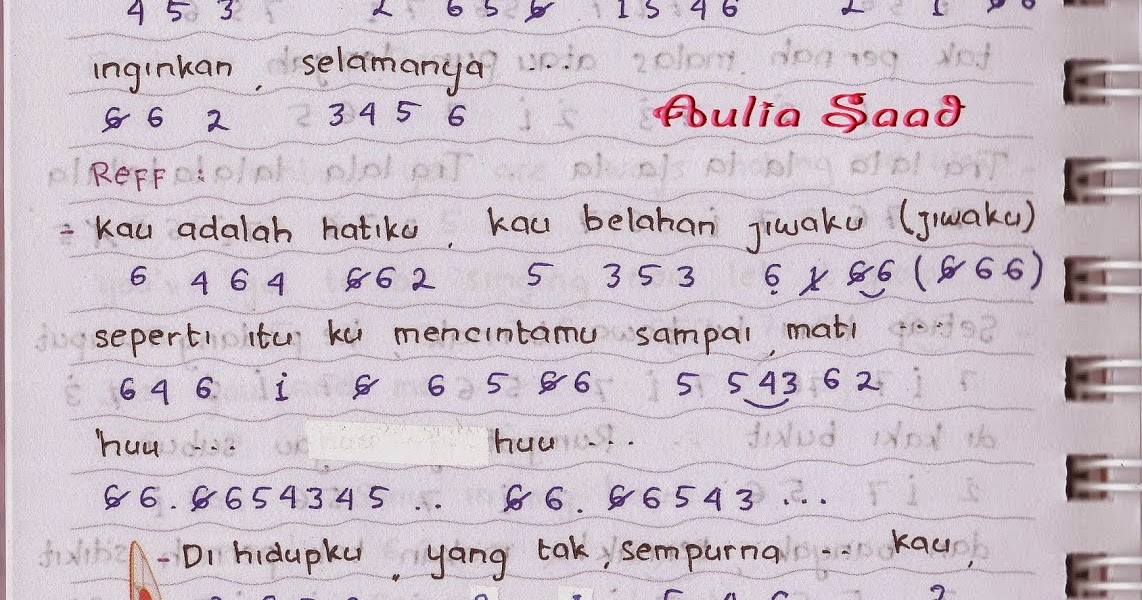 4 5 3 2 6 5 6̸ 1 5 4 6 2 1
inginkan, selamanya ...
6̸ 6 2 3 4 5 6 Aulia Saad
Reff :
- Kau adalah hatiku, kau belahan jiwaku (jiwaku)
6 4 6 4 6̸ 6 2 5 3 5 3 6̣ 1̸ 6̸ 6 (6̸ 6 6)
seperti itu ku mencintamu sampai mati ....
6 4 6 i 6̸ 6 5 6̸ 6 5 5 4 3 6 2
huu ... huu ....
6̸ 6 . 6̸ 6 5 4 3 4 5 .. 6̸ 6 . 6̸ 6 5 4 3 ...
- Di hidupku, yang tak, sempurna ... kau,